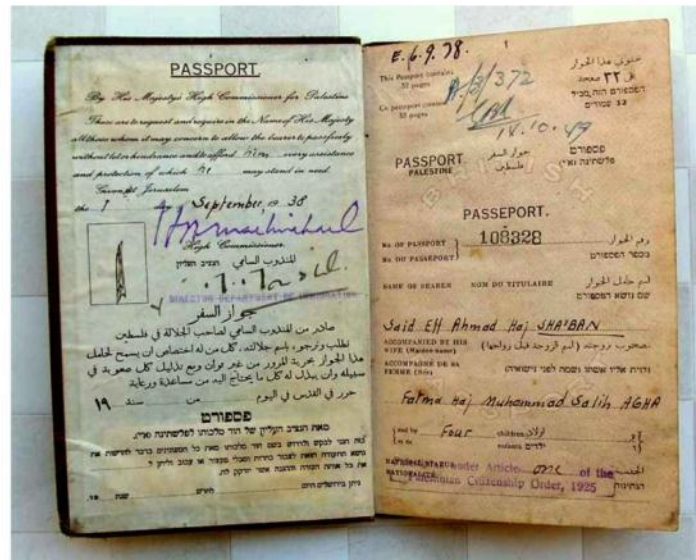 PASSPORT.
By His Majesty's High Commissioner for Palestine
These are to request and require in the Name of His Majesty
all those whom it may concern to allow the bearer to pass freely
without let or hindrance and to afford him every assistance
and protection of which he may stand in need.
Given at Jerusalem
the 1 day September, 1938
High Commissioner.
المندوب السامي הנציב העליון
DIRECTOR DEPARTMENT OF IMMIGRATION
جواز السفر
صادر من المندوب السامي لصاحب الجلالة في فلسطين
نطلب ونرجو، باسم جلالته، كل من له اختصاص ان يسمح لحامل
هذا الجواز بحرية المرور من غير توان ومع تذليل كل صعوبة في
سبيله وان يبذل له كل ما يحتاج اليه من مساعدة ورعاية
حرر في القدس في اليوم من سنة ١٩
פספורט
מאת הנציב העליון של הוד מלכותו לפלשתינה (א״י).
ניתן בירושלים היום לחודש שנת 19.
E.6.9.38.
1
This Passport contains
32 pages
Ce passeport contient
32 pages
A/3/372
18.10.49
يحتوي هذا الجواز
على ٣٢ صفحة
הפספורט הזה מכיל
32 עמודים
PASSPORT
PALESTINE
جواز السفر
فلسطين
פספורט
פלשתינה (א״י)
BRITISH
PASSEPORT.
No. OF PASSPORT
No. DU PASSEPORT
108328
رقم الجواز
מספר הפספורט
NAME OF BEARER NOM DU TITULAIRE
اسم حامل الجواز
שם נושא הפספורט
Said Eff Ahmad Haj SHA'BAN
ACCOMPANIED BY HIS
WIFE (Maiden name)
مصحوب بزوجته (اسم الزوجة قبل زواجها)
ACCOMPAGNÉ DE SA
FEMME (Née)
נלוית אליו אשתו (שמה לפני נישואיה)
Fatma Haj Muhammad Salih AGHA
and by Four children اولاد و
et de enfants ילדים
NATIONAL STATUS under Article one of the الجنسية
NATIONALITÉ Palestinian Citizenship Order, 1925 הנתינות